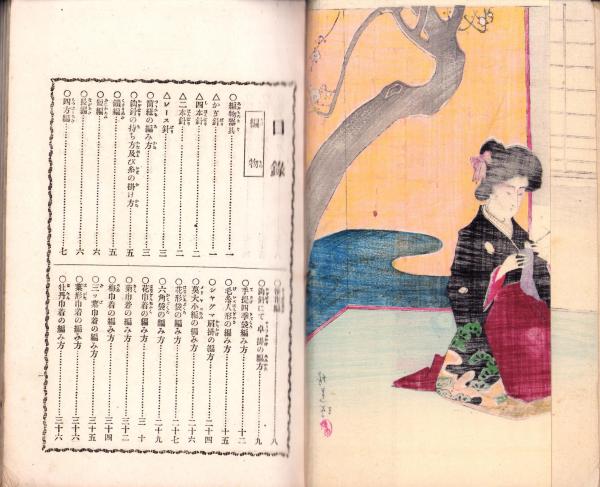 目錄
編物
○編物器具……一
△かぎ針……一
△四本針……二
△二本針……二
△レース針……三
○簡樣の編み方……三
○鈎針の持ち方及び糸の掛け方……五
○鎖編……五
○短編……六
○長編……六
○四方編……七
八
○鈎針にて卓掛の編方……九
○手提四季袋編み方……十二
○毛糸人形の編み方……十五
○シャグマ肩掛の編方……二十四
○莫大小編の編み方……二十六
○花形袋の編み方……二十七
○六角袋の編み方……二十九
○花巾着の編み方……三十
○菊巾着の編み方……三十二
○梅巾着の編み方……三十四
○三ッ葉巾着の編み方……三十五
○葉形巾着の編み方……三十六
○牡丹巾着の編み方……三十六